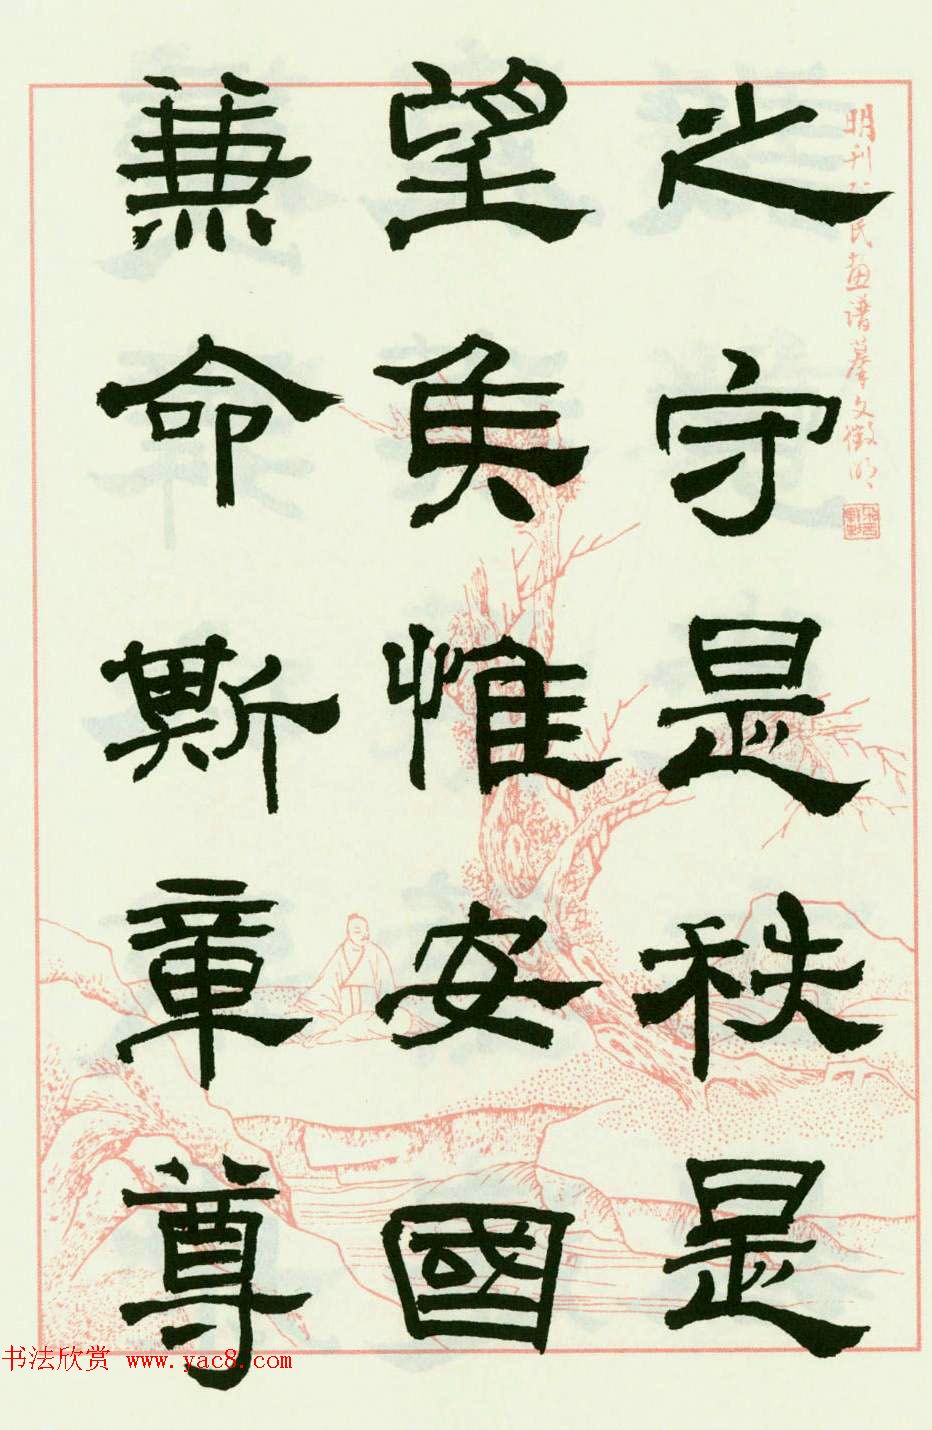 之守是秩是
望侯惟安國
兼命斯章尊
明刊
民畫譜摹文徵明
书法欣赏 www.yac8.com